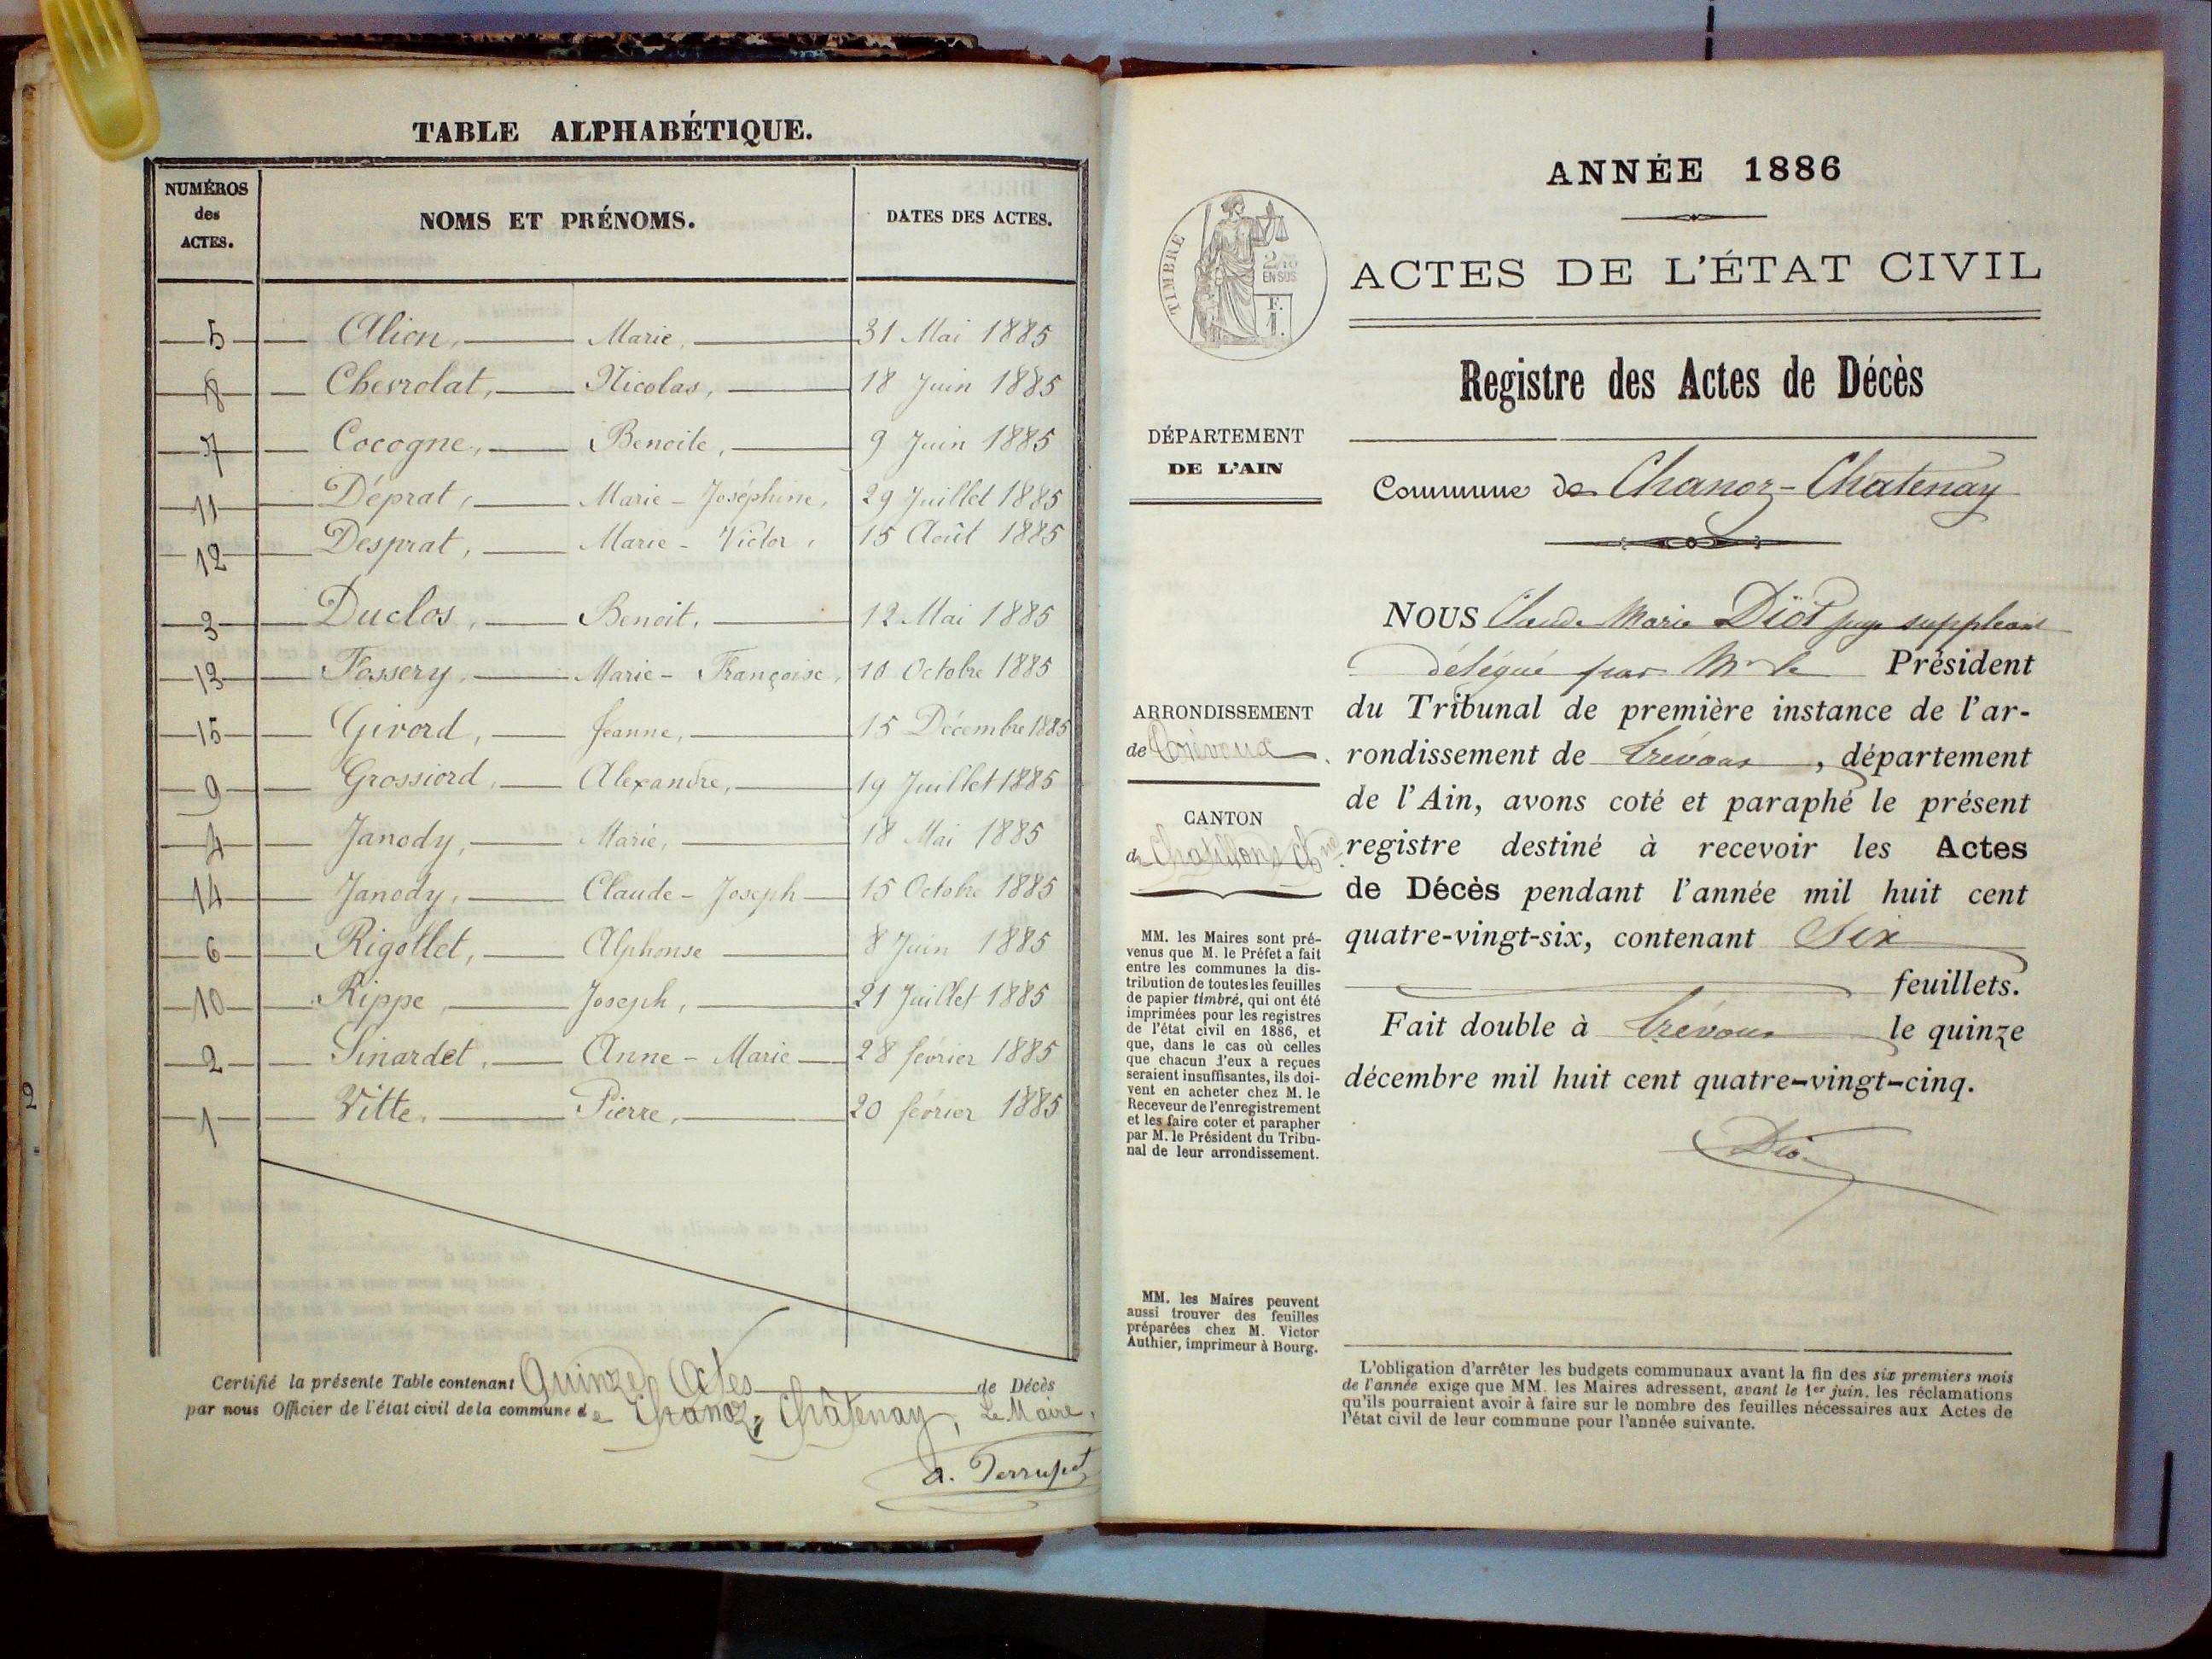 TABLE ALPHABÉTIQUE.
NUMÉROS des ACTES. NOMS ET PRÉNOMS. DATES DES ACTES.
5 Alion, Marie, 31 Mai 1885
8 Chevrolat, Nicolas, 18 Juin 1885
7 Cocogne, Benoite, 9 Juin 1885
11 Déprat, Marie-Joséphine, 29 Juillet 1885
12 Desprat, Marie-Victor, 15 Août 1885
3 Duclos, Benoit, 12 Mai 1885
13 Fassery, Marie-Françoise, 10 Octobre 1885
15 Givord, Jeanne, 15 Décembre 1885
9 Grossiord, Alexandre, 19 Juillet 1885
4 Janody, Marie, 18 Mai 1885
14 Janody, Claude-Joseph 15 Octobre 1885
6 Rigollet, Alphonse 8 Juin 1885
10 Rippe, Joseph, 21 Juillet 1885
2 Sinardet, Anne-Marie 28 février 1885
1 Vitte, Pierre, 20 février 1885
Certifié la présente Table contenant Quinze Actes de Décès
par nous Officier de l'état civil de la commune de Chanoz-Châtenay, Le Maire,
2
ANNÉE 1886
TIMBRE
2/10
EN SUS
F.
1.
ACTES DE L'ÉTAT CIVIL
Registre des Actes de Décès
DÉPARTEMENT
DE L'AIN
Commune de Chanoz-Chatenay
NOUS Claude Marie Diot juge suppléant
délégué par Mr le Président
du Tribunal de première instance de l'ar-
rondissement de Trévoux, département
de l'Ain, avons coté et paraphé le présent
registre destiné à recevoir les Actes
de Décès pendant l'année mil huit cent
quatre-vingt-six, contenant Six
feuillets.
Fait double à Trévoux le quinze
décembre mil huit cent quatre-vingt-cinq.
ARRONDISSEMENT
de Trévoux
CANTON
de Chatillon s Chne
MM. les Maires sont pré-
venus que M. le Préfet a fait
entre les communes la dis-
tribution de toutes les feuilles
de papier timbré, qui ont été
imprimées pour les registres
de l'état civil en 1886, et
que, dans le cas où celles
que chacun d'eux a reçues
seraient insuffisantes, ils doi-
vent en acheter chez M. le
Receveur de l'enregistrement
et les faire coter et parapher
par M. le Président du Tribu-
nal de leur arrondissement.
MM. les Maires peuvent
aussi trouver des feuilles
préparées chez M. Victor
Authier, imprimeur à Bourg.
L'obligation d'arrêter les budgets communaux avant la fin des six premiers mois
de l'année exige que MM. les Maires adressent, avant le 1er juin, les réclamations
qu'ils pourraient avoir à faire sur le nombre des feuilles nécessaires aux Actes de
l'état civil de leur commune pour l'année suivante.